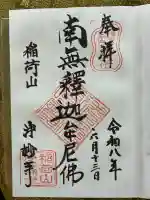 奉拝
令和八年
六月十三日
南無釋迦牟尼佛
稲荷山